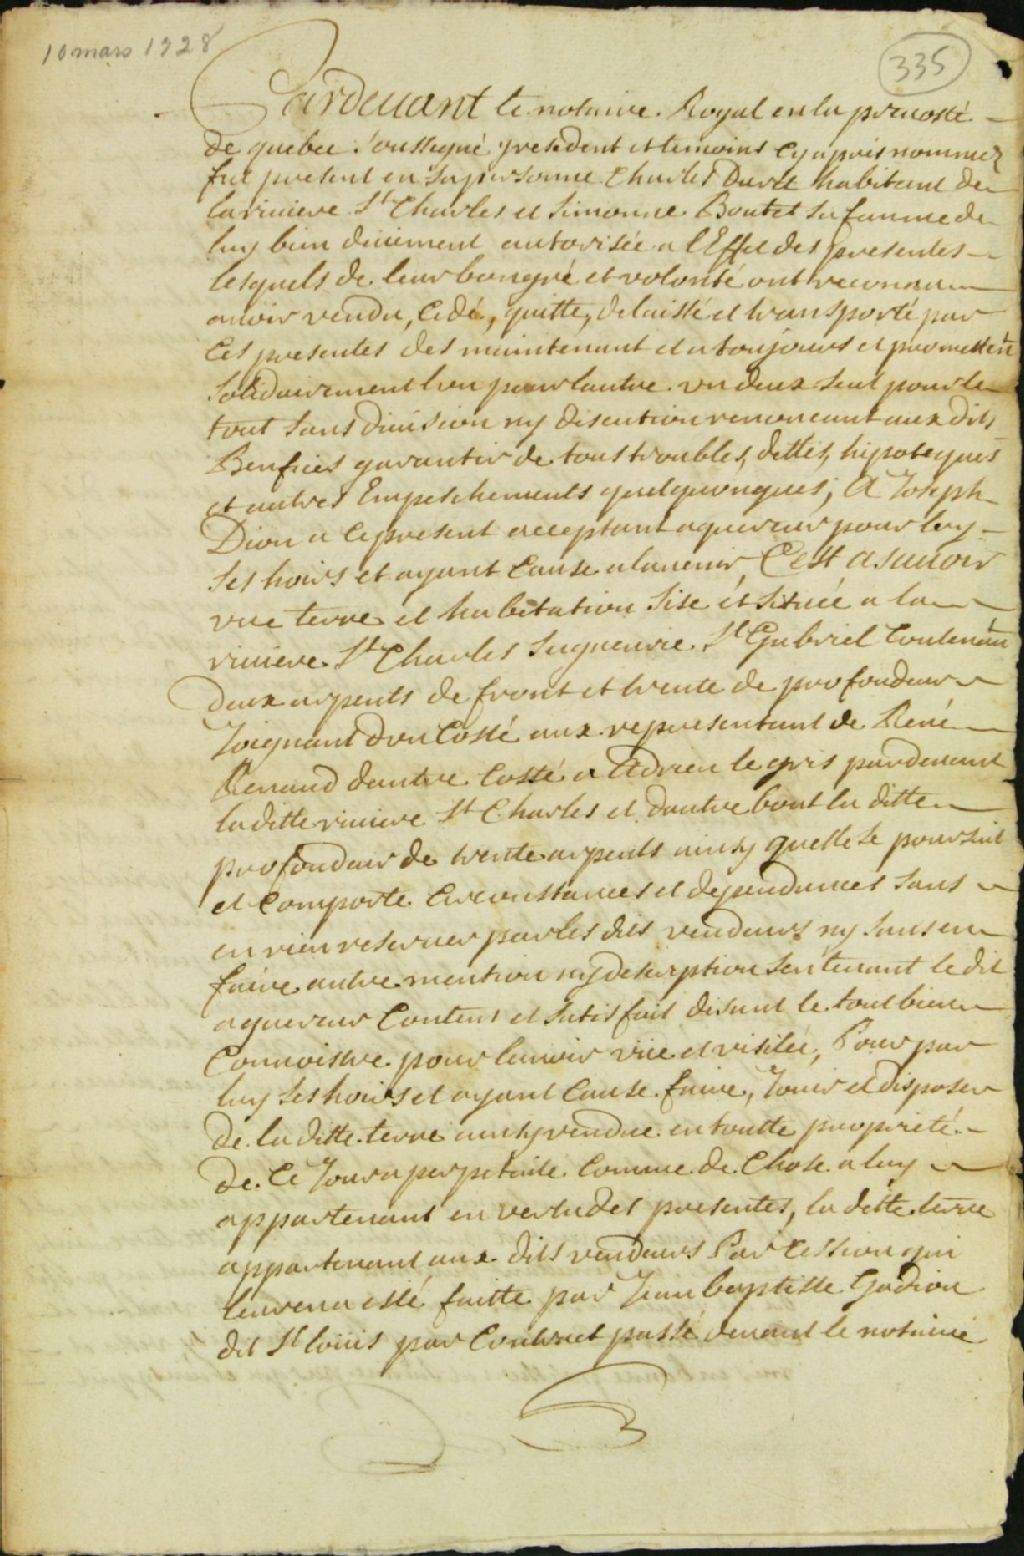 10 mars 1728
335
Pardevant le notaire Royal en la prevosté
de quebec soussigné y resident et temoins cy apres nommez
fut present en sa personne Charles Duret habitant de
la riviere St Charles et Simonne Boutet sa femme de
luy bien düement autorisée a l'Effet des presentes
lesquels de leur bongré et volonté ont reconnu
avoir vendu, cedé, quitté, delaissé et transporté par
Ces presentes des maintenant et a toujours et promettent
solidairement l'un pour lautre un deux seul pour le
tout sans division ny discution renonceant aux dits
Benfices garantir de tous troubles, dettes, hipoteques
et autres Empeschements quelquonques, A Joseph
Dion a ce present acceptant aquereur pour luy
ses hoirs et ayant cause alavenir, C'est asavoir
une terre et habitation sise et située a la
riviere St Charles Seigneurie St Gabriel Contenant
deux arpents de front et trente de profondeur
Joignant dun Costé aux representant de René
Renaud dautre Costé a Adrien le gris pardevant
laditte riviere St Charles et dautre bout la ditte
profondeur de trente arpents ainsy quelle se poursuit
et Comporte Circonstances et dependances sans
en rien reserver par les dits vendeurs ny sans en
faire autre mention ny description sen tenant le dit
aquereur Content et satisfait disant le tout bien
Connoistre pour lavoir vüe et visitée, Pour par
luy ses hoirs et ayant Cause faire, Jouir et disposer
de la ditte terre ainsy vendue en toutte proprieté
de Ce Jour a perpetuite Comme de Chose a luy
appartenant en vertu des presentes, la ditte terre
appartenant aux dits vendeurs Par Cession qui
leur en a esté faitte par Jean baptiste Gadiou
dit St loüis par Contract passé devant le notaire